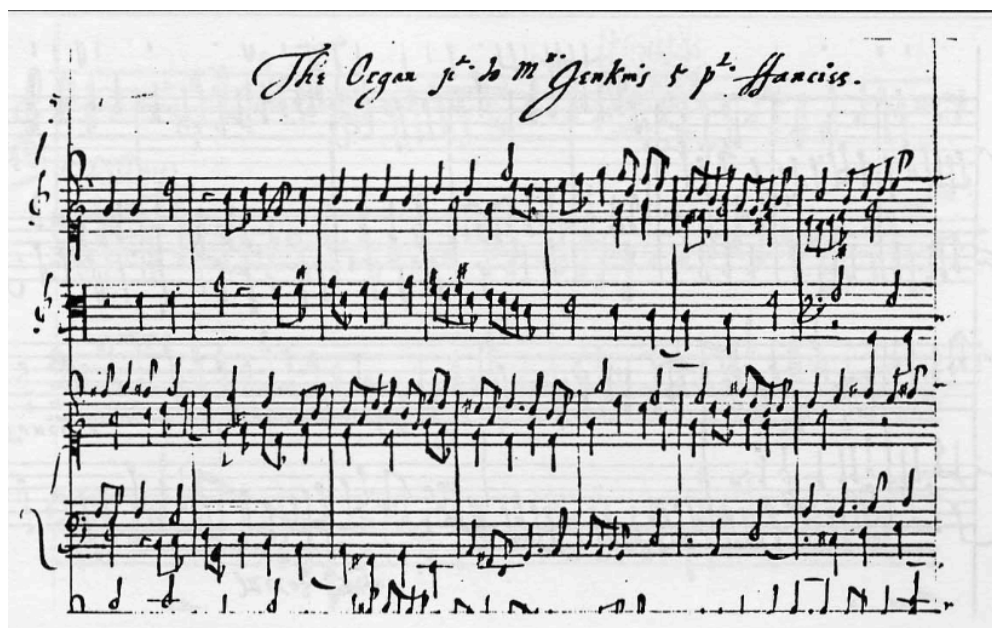 The Organ pt. to Mr. Jenkins 5 pt. ffancies.